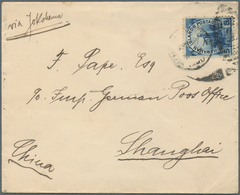 via Yokohama
F. Pape. Esq
c/o Imp. German Post Office
Shanghai
China